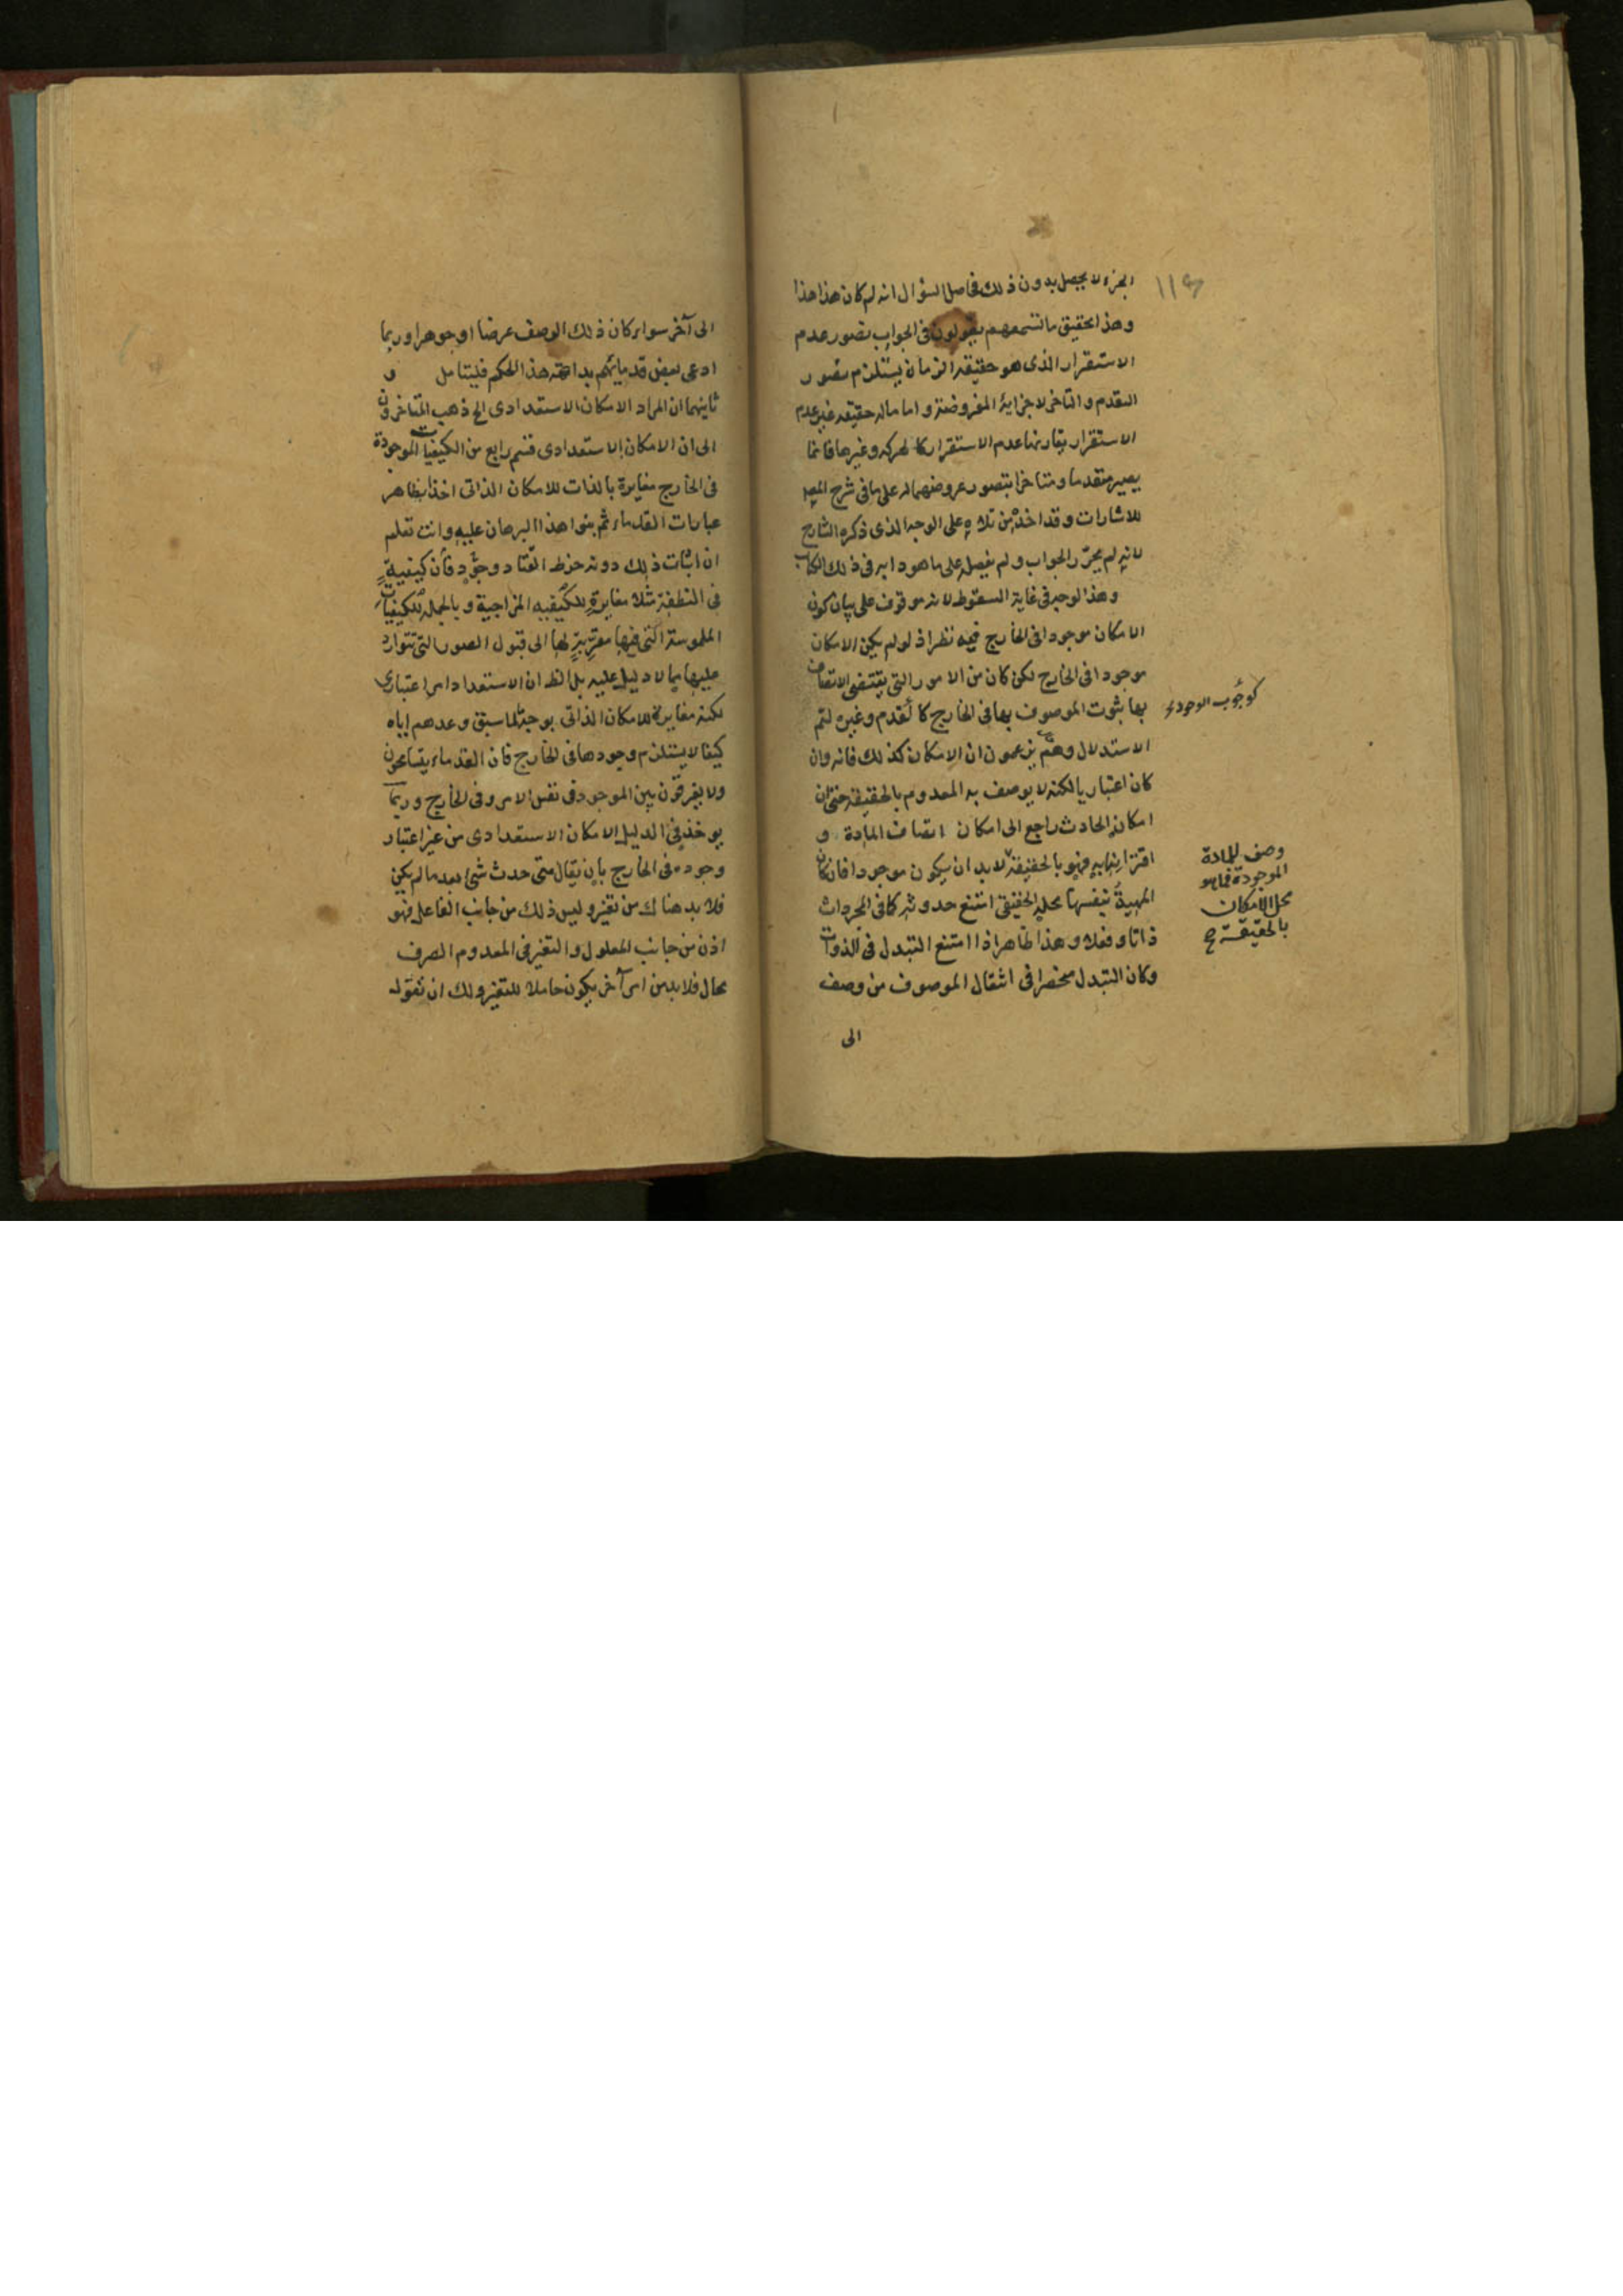 الجزء لا يحصل بدون ذلك فحاصل السؤال انه لم كان هذا هذا
وهذا تحقيق ما تسمعهم يقولون فى الجواب تصور عدم
الاستقرار الذى هو حقيقة الزمان يستلزم تصور
التقدم والتاخر لاجزايه المفروضة واما ماله حقيقه غير عدم
الاستقرار يقارنها عدم الاستقرار كالحركه وغيرها فانما
يصير متقدما ومتاخرا بتصور عروضهما له على ما فى شرح المص
للاشارات وقد اخذه من تلاه على الوجه الذى ذكره الشارح
لانه لم يحرّر الجواب ولم يفصله على ما هو دابه فى ذلك الكتاب
وهذا الوجه فى غاية السقوط لانه موقوف على بيان كون
الامكان موجودا فى الخارج فيه نظر اذ لو لم يكن الامكان
موجودا فى الخارج لكن كان من الامور التى يقتضى الاتصاف
بها ثبوت الموصوف بها فى الخارج كالتقدم وغيره لتم
كوجوب الوجود
الاستدلال وهم يزعمون ان الامكان كذلك فانه وان
كان اعتباريا لكنه لا يوصف به المعدوم بالحقيقة حتى ان
امكان الحادث راجع الى امكان اتصاف المادة و
اقترانها به فهو بالحقيقة لا بد ان يكون موجودا فان كان
وصف للمادة
الموجودة فما هو
محل الامكان
بالحقيقة
المهية بنفسها محله الحقيقى امتنع حدوثه كما فى المجردات
ذاتا وفعلا وهذا ظاهر اذا امتنع التبدل فى الذوات
وكان التبدل منحصرا فى انتقال الموصوف من وصف
الى
الى آخر سواء كان ذلك الوصف عرضا او جوهرا وربما
ادعى بعض قدمائهم بداهة هذا الحكم فليتامل و
ثانيهما ان المراد الامكان الاستعدادى الخ ذهب المتاخرون
الى ان الامكان الاستعدادى قسم رابع من الكيفيات الموجودة
فى الخارج مغايرة بالذات للامكان الذاتى اخذا بظاهر
عبارات القدماء ثم بنوا هذا البرهان عليه وانت تعلم
ان اثبات ذلك دونه خرط القتاد وجود فان كيفية
فى النطفة مثلا مغايرة للكيفيه المزاجية وبالجمله للكيفيات
الملموسة التى فيها مقربة لها الى قبول الصور التى تتوارد
عليها مما لا دليل عليه بل الظ ان الاستعداد امر اعتبارى
لكنه مغايرة للامكان الذاتى بوجه لما سبق وعدهم اياه
كيفا لا يستلزم وجودها فى الخارج فان القدماء يتسامحون
ولا يفرقون بين الموجود فى نفس الامر وفى الخارج وربما
يوخذ فى الدليل الامكان الاستعدادى من غير اعتبار
وجوده فى الخارج بان يقال متى حدث شئ بعد ما لم يكن
فلا بد هناك من تغير وليس ذلك من جانب الفاعل فهو
اذن من جانب المعلول والتغير فى المعدوم الصرف
محال فلا بد من امر آخر يكون حاملا للتغير ولك ان تقول